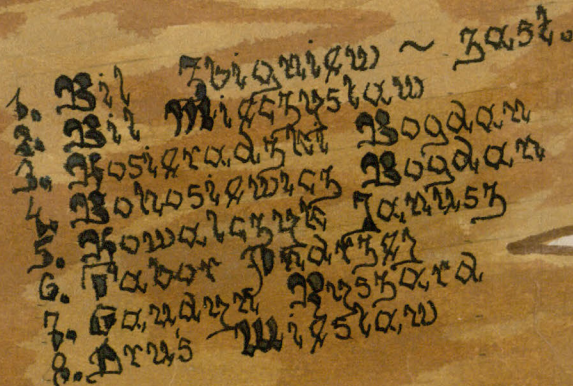 1. Bil Zbigniew ~ zast.
2. Bil Mieczysław
3. Kosieradzki Bogdan
4. Bohosiewicz Bogdan
5. Kowalczyk Janusz
6. Tabor Andrzej
7. Gaudyn Ryszard
8. Drus Wiesław